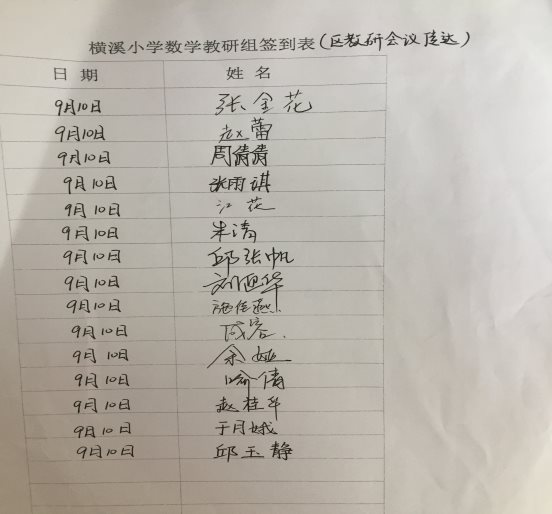 横溪小学数学教研组签到表(区教研会议传达)
日 期 姓 名
9月10日 张金花
9月10日 赵蕾
9月10日 周倩倩
9月10日 张雨琪
9月10日 江花
9月10日 朱清
9月10日 邱张帆
9月10日 刘
9月10日 施佳燕
9月10日
9月10日 余娅
9月10日 喻倩
9月10日 赵桂华
9月10日 于月娥
9月10日 邱玉静